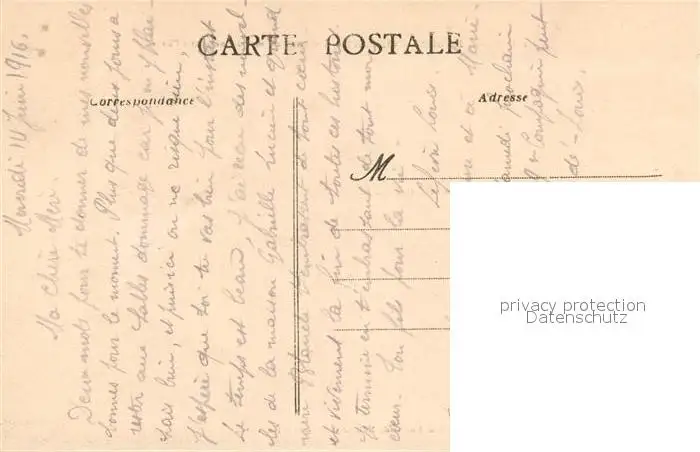 CARTE POSTALE
Correspondance
Adresse
M
Mercredi 14 Juin 1916.
Ma Chère Mère
Deux mots pour te donner de mes nouvelles
bonnes pour le moment. Plus que deux jours a
rester aux Salles dommage car on
bien, et puis ici on ne risque rien,
J'espère que toi tu vas bien pour l'instant
Le temps est beau, j'ai reçu des nouvel-
les de la maison Gabrielle Lucien et
Blanche de tout cœur
et vivement la fin de toutes ces histoires
Je termine en t'embrassant de tout mon
cœur. Ton fils pour la vie.
Léon Louis
et à Marie-
amedi prochain
Compagnie peut
dé-Louis.
privacy protection
Datenschutz